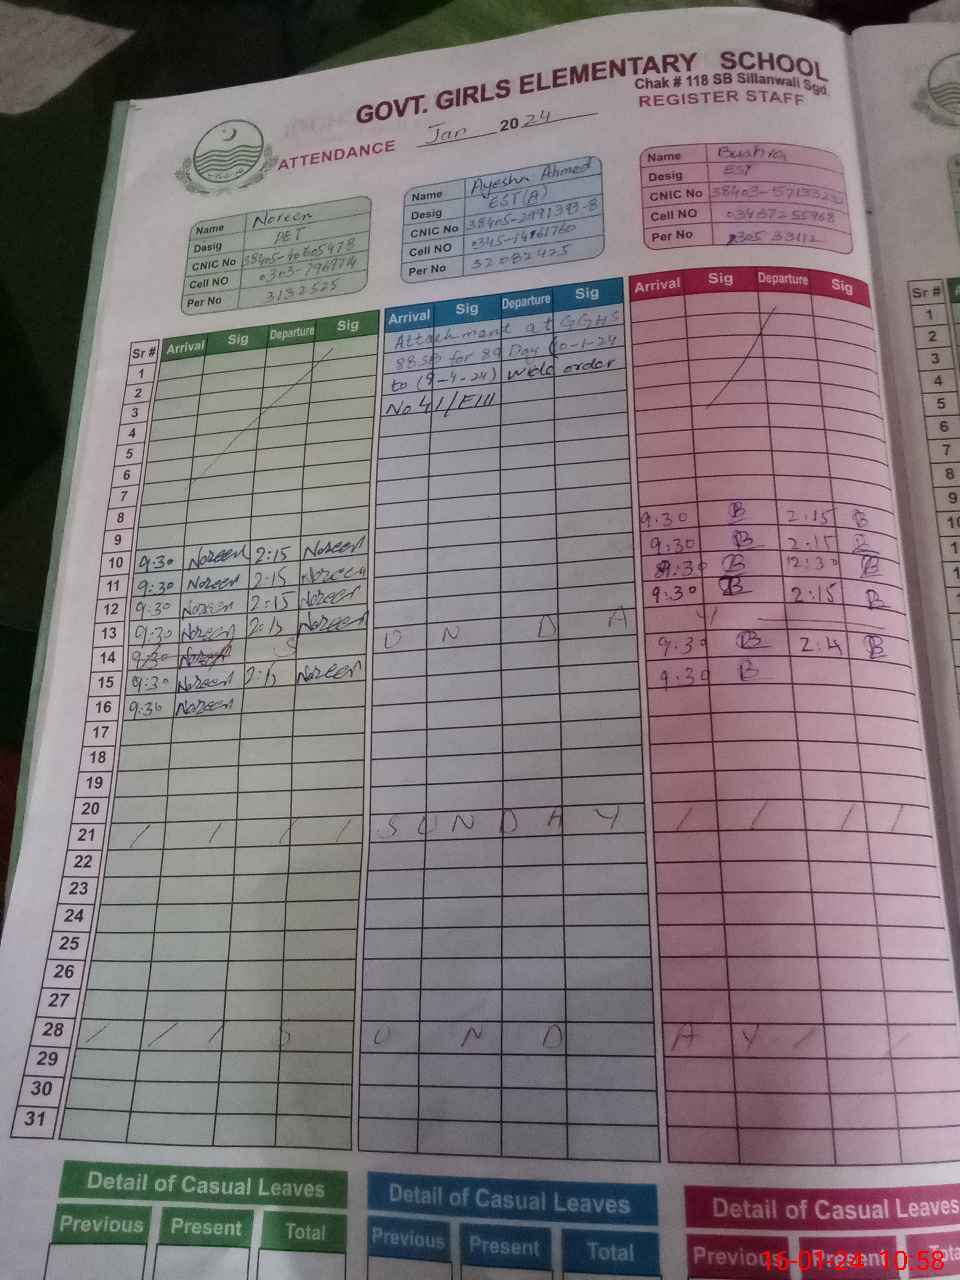 GOVT. GIRLS ELEMENTARY SCHOOL
Chak # 118 SB Sillanwali Sgd.
ATTENDANCE Jan 2024 REGISTER STAFF
Name Noreen
Desig
CNIC No
Cell NO
Per No 3132525
Name Ayesha Ahmed
Desig EST(A)
CNIC No 38405-2991393-8
Cell NO
Per No 32082425
Name Bushra
Desig EST
CNIC No
Cell NO 03467255968
Per No
Sr # Arrival Sig Departure Sig Arrival Sig Departure Sig Arrival Sig Departure Sig
1 Attachment at GGHS
2 88SB for 89 Day (10-1-24
3 to (8-4-24) wide order
4 No 41/EIII
5
6
7
8
9
10 9:30 Noreen 2:15 Noreen 9:30 B 2:15 B
11 9:30 Noreen 2:15 Noreen 9:30 B 2:15 B
12 9:30 Noreen 2:15 Noreen 9:30 B 12:30 B
13 9:30 Noreen 2:15 Noreen 9:30 B 2:15 B
14 9:30 Noreen S U N D A Y
15 9:30 Noreen 2:15 Noreen 9:30 B B
16 9:30 Noreen 9:30 B
17
18
19
20
21 / / / / S U N D A Y / / / /
22
23
24
25
26
27
28 / / / S U N D A Y / /
29
30
31
Detail of Casual Leaves Detail of Casual Leaves Detail of Casual Leaves
Previous Present Total Previous Present Total Previous Present Tota
16-01-24 10:58
Sr #
1
2
3
4
5
6
7
8
9
10